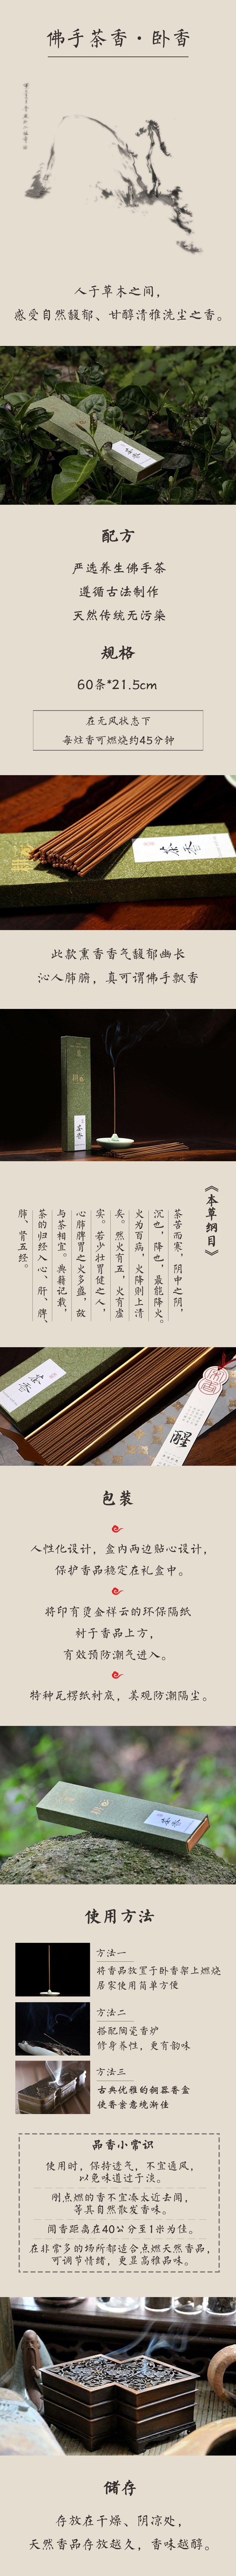 佛手茶香·卧香
人于草木之间，
感受自然馥郁、甘醇清雅洗尘之香。
配方
严选养生佛手茶
遵循古法制作
天然传统无污染
规格
60条*21.5cm
在无风状态下
每炷香可燃烧约45分钟
茶香
此款熏香香气馥郁幽长
沁人肺腑，真可谓佛手飘香
茶香
《本草纲目》
茶苦而寒，阴中之阴，
沉也，降也，最能降火。
火为百病，火降则上清
矣。然火有五，火有虚
实。若少壮胃健之人，
心肺脾胃之火多盛，故
与茶相宜。典籍记载，
茶的归经入心、肝、脾、
肺、肾五经。
茶香
醒
包装
人性化设计，盒内两边贴心设计，
保护香品稳定在礼盒中。
将印有烫金祥云的环保隔纸
衬于香品上方，
有效预防潮气进入。
特种瓦楞纸衬底，美观防潮隔尘。
使用方法
方法一
将香品放置于卧香架上燃烧
居家使用简单方便
方法二
搭配陶瓷香炉
修身养性，更有韵味
方法三
古典优雅的铜器香盒
使香祟意境渐佳
品香小常识
使用时，保持透气，不宜通风，
以免味道过于淡。
刚点燃的香不宜凑太近去闻，
等其自然散发香味。
闻香距离在40公分至1米为佳。
在非常多的场所都适合点燃天然香品，
可调节情绪，更显高雅品味。
储存
存放在干燥、阴凉处，
天然香品存放越久，香味越醇。